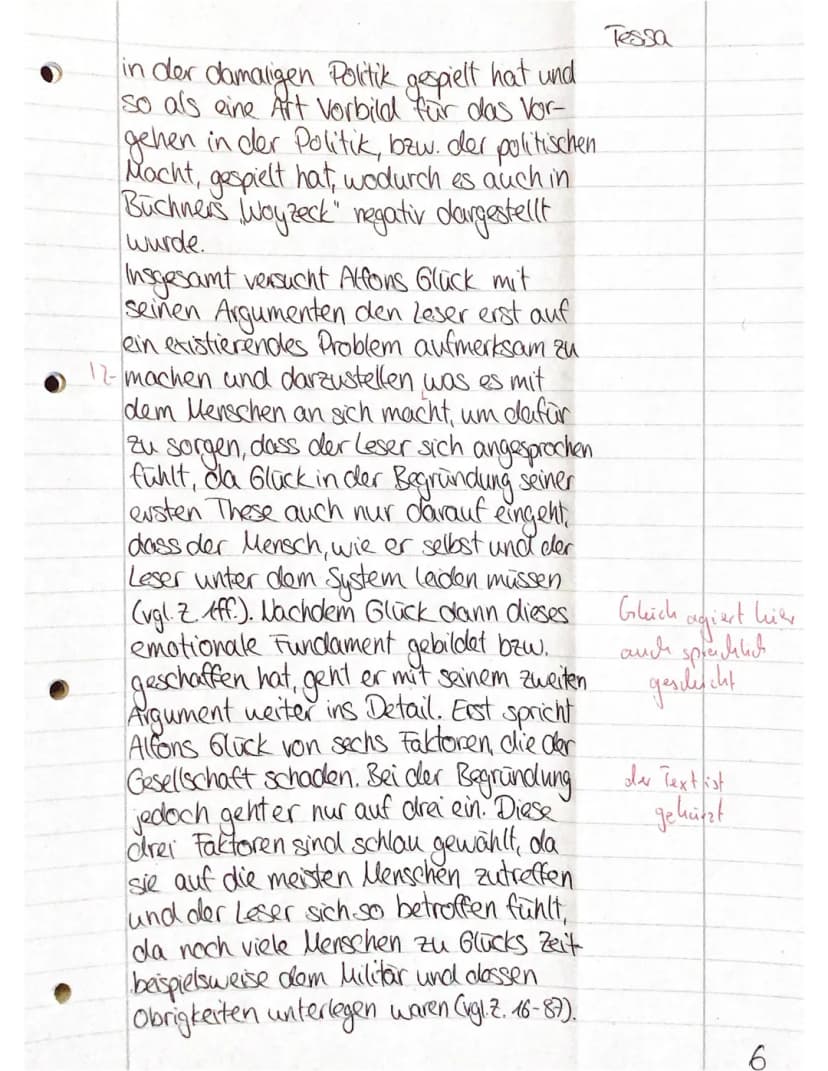 Tessa
in der damaligen Politik gespielt hat und
so als eine Art Vorbild für das Vor-
gehen in der Politik, bzw. der politischen
Macht, gespielt hat, wodurch es auch in
Büchners „Woyzeck" negativ dargestellt
wurde.
Insgesamt versucht Alfons Glück mit
seinen Argumenten den Leser erst auf
ein existierendes Problem aufmerksam zu
machen und darzustellen was es mit
dem Menschen an sich macht, um dafür
zu sorgen, dass der Leser sich angesprochen
fühlt, da Glück in der Begründung seiner
ersten These auch nur darauf eingeht,
dass der Mensch, wie er selbst und der
Leser unter dem System leiden müssen
(vgl. Z. 1ff.). Nachdem Glück dann dieses
emotionale Fundament gebildet bzw.
geschaffen hat, geht er mit seinem zweiten
Argument weiter ins Detail. Erst spricht
Alfons Glück von sechs Faktoren, die der
Gesellschaft schaden. Bei der Begründung
jedoch geht er nur auf drei ein. Diese
drei Faktoren sind schlau gewählt, da
sie auf die meisten Menschen zutreffen
und der Leser sich so betroffen fühlt,
da noch viele Menschen zu Glücks Zeit
beispielsweise dem Militär und dessen
Obrigkeiten unterlegen waren (vgl. Z. 16-87).
Glück agiert hier
auch sprachlich
der Text ist
gekürzt
6